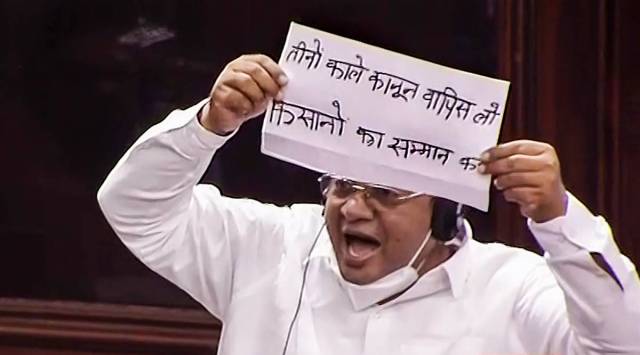 तीनों काले कानून वापिस लो
किसानों का सम्मान क